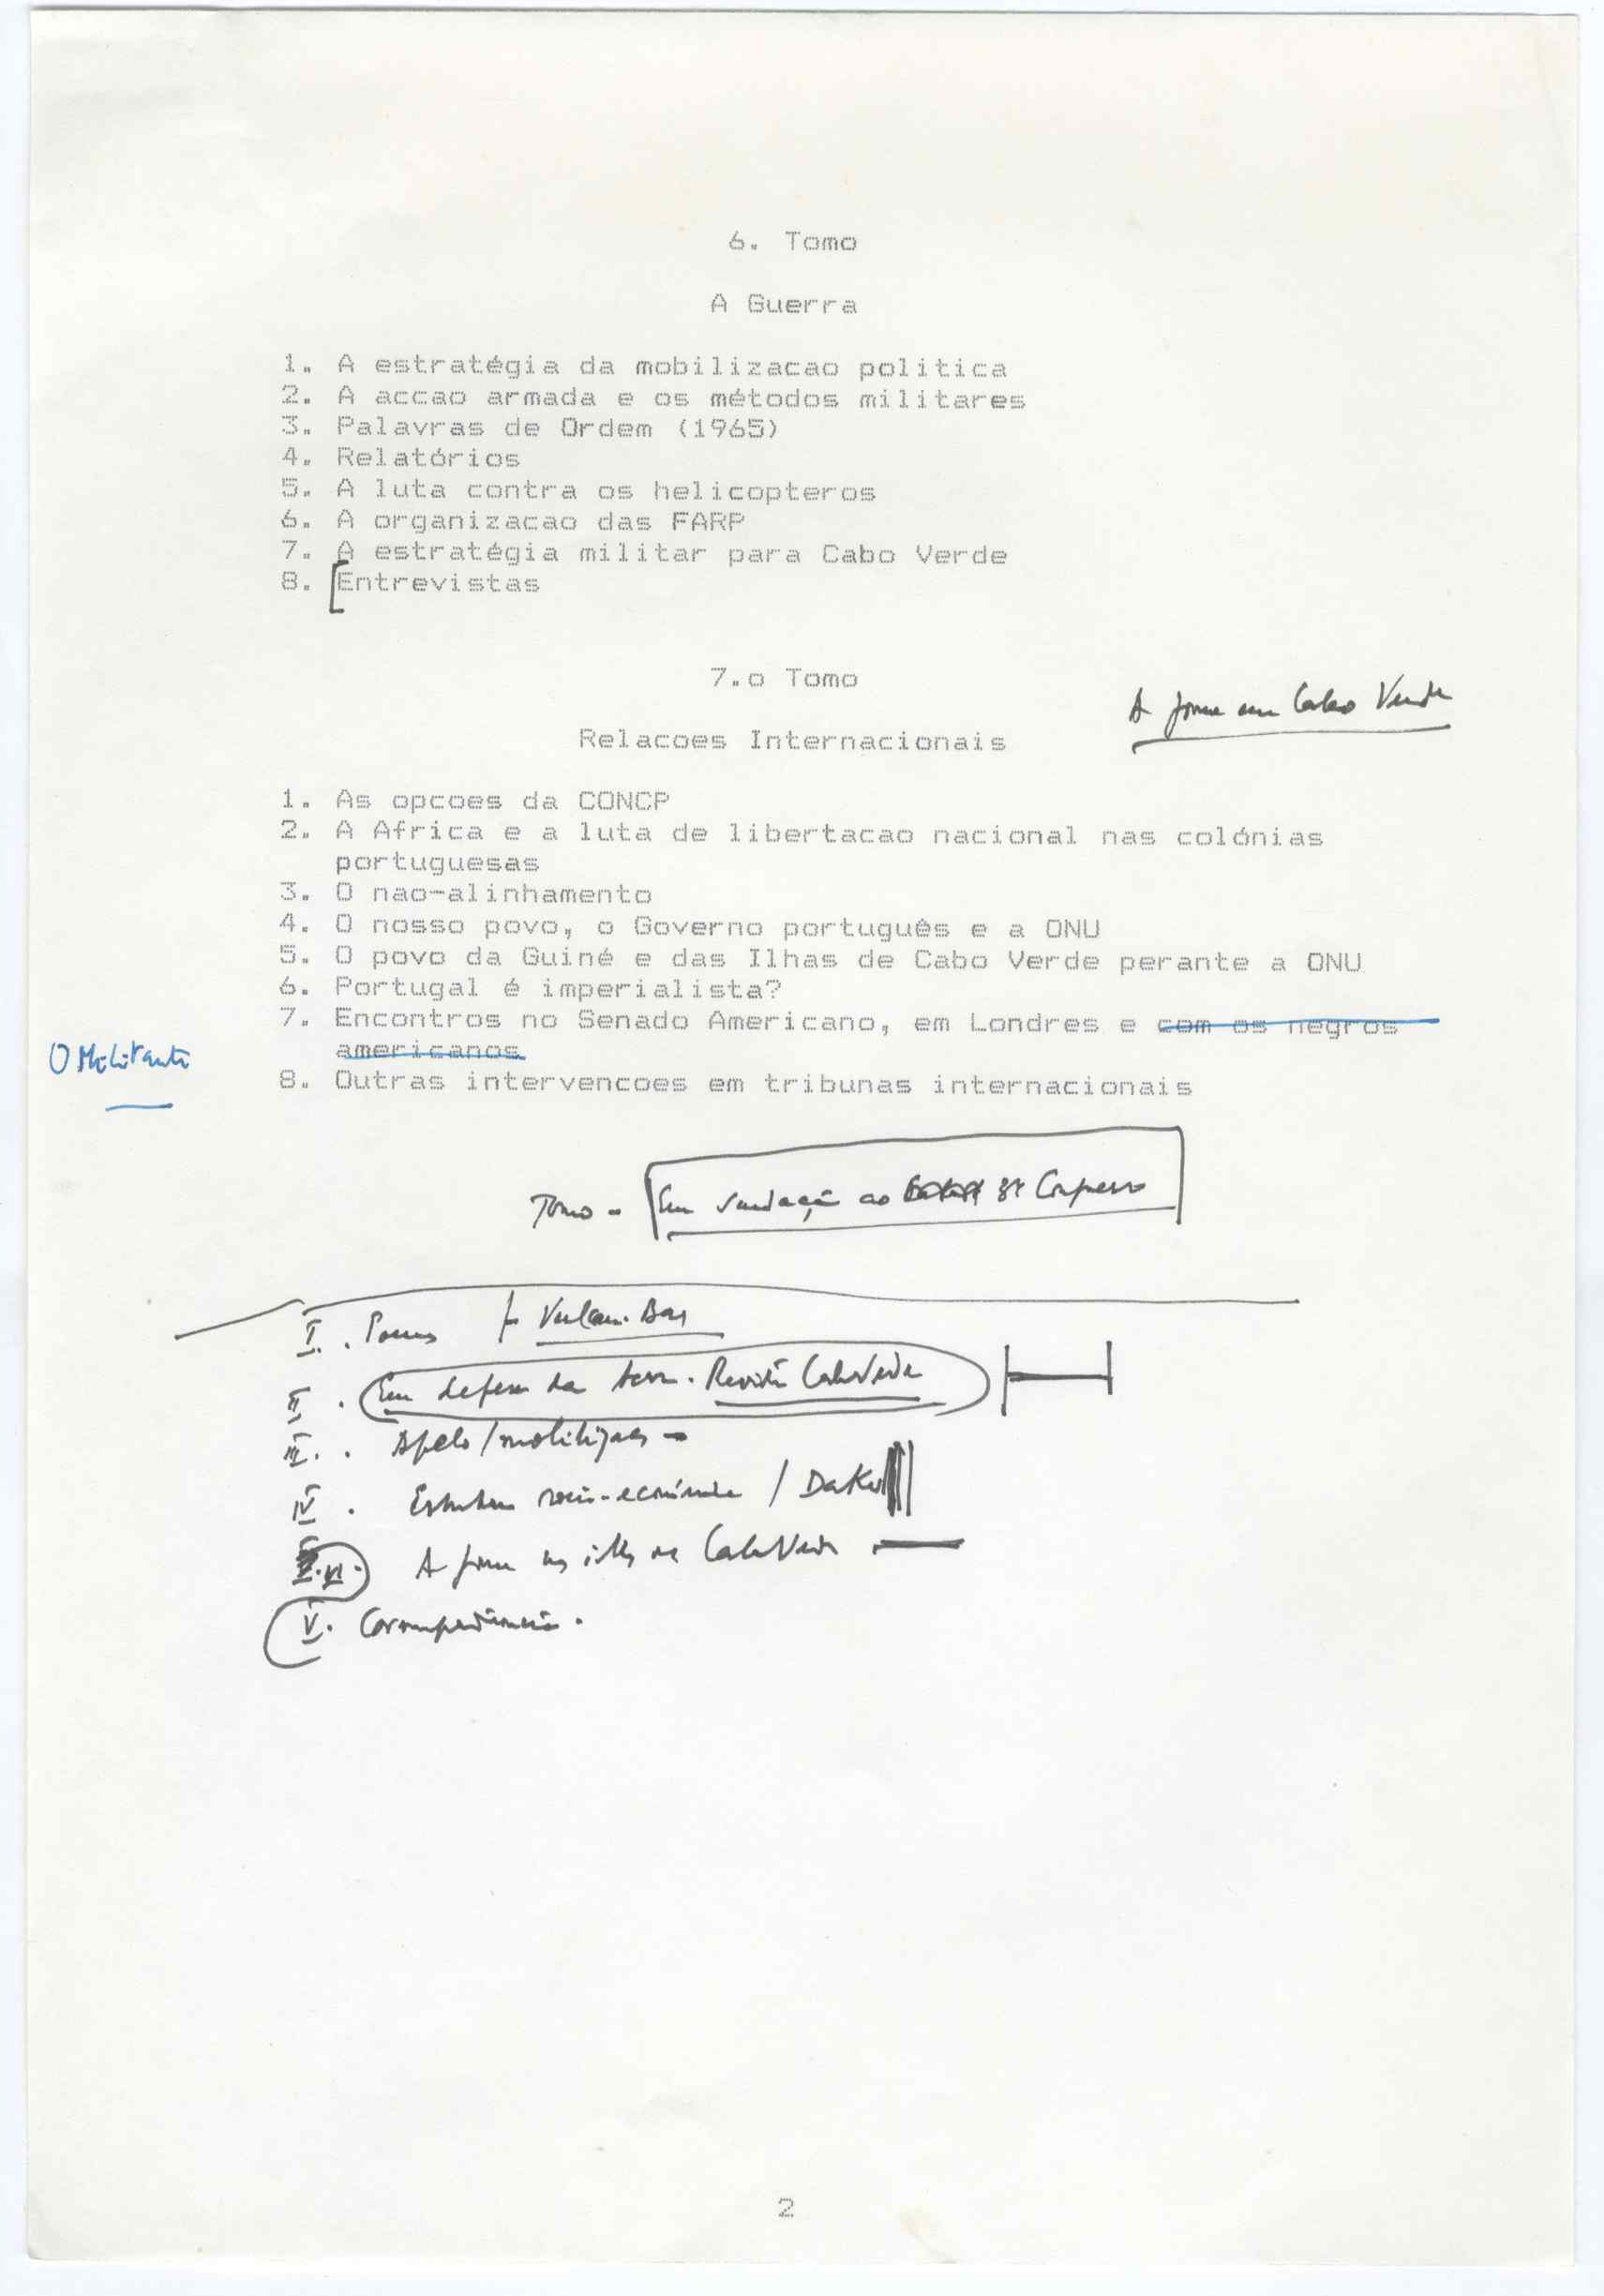 6. Tomo
A Guerra
1. A estratégia da mobilizacao politica
2. A accao armada e os métodos militares
3. Palavras de Ordem (1965)
4. Relatórios
5. A luta contra os helicopteros
6. A organizacao das FARP
7. A estratégia militar para Cabo Verde
8. [Entrevistas
7.o Tomo
A fome em Cabo Verde
Relacoes Internacionais
1. As opcoes da CONCP
2. A Africa e a luta de libertacao nacional nas colónias
portuguesas
3. O nao-alinhamento
4. O nosso povo, o Governo português e a ONU
5. O povo da Guiné e das Ilhas de Cabo Verde perante a ONU
6. Portugal é imperialista?
7. Encontros no Senado Americano, em Londres e com os negros
americanos
O Militante
8. Outras intervencoes em tribunas internacionais
Tomo - Em saudação ao Congresso
I. Poemas
II. Em defesa da terra. Revista Cabo Verde
III. Apelo/mobilização
IV. Estrutura socio-económica /
VI. A fome nas ilhas de Cabo Verde
V. Correspondência.
2